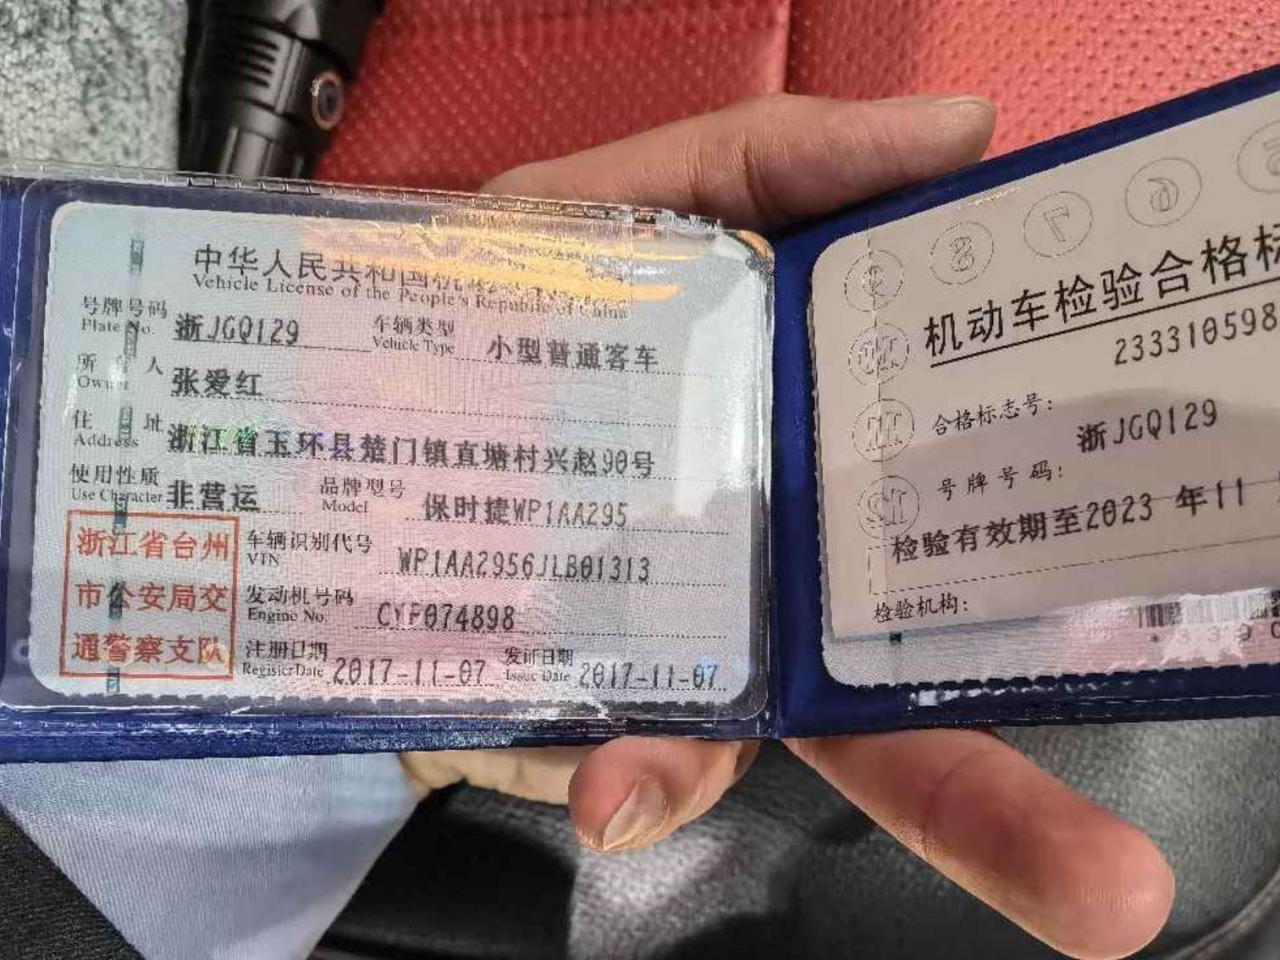 中华人民共和国机
Vehicle License of the People's Republic of China
号牌号码 浙JGQ129 车辆类型 小型普通客车
Plate No. Vehicle Type
所有人 张爱红
Owner
住址 浙江省玉环县楚门镇直塘村兴赵90号
Address
使用性质 非营运 品牌型号 保时捷WP1AA295
Use Character Model
浙江省台州
市公安局交
通警察支队
车辆识别代号 WP1AA2956JLB01313
VIN
发动机号码 CYP074898
Engine No.
注册日期 2017-11-07 发证日期 2017-11-07
Register Date Issue Date
机动车检验合格标
233310598
合格标志号:
浙JGQ129
号牌号码:
检验有效期至2023 年11
检验机构: